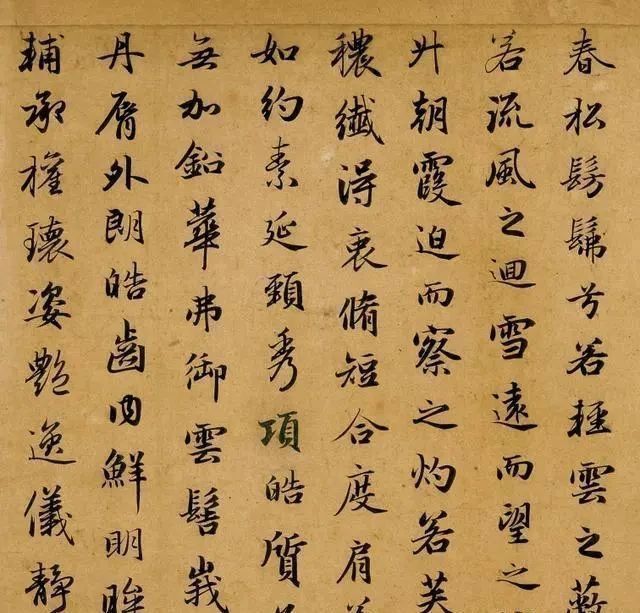 春松髣髴兮若輕雲之蔽
若流風之迴雪遠而望之
升朝霞迫而察之灼若芙
穠纖得衷脩短合度肩
如約素延頸秀項皓質
無加鉛華弗御雲髻峩
丹脣外朗皓齒内鮮明眸
輔承權瓌姿艷逸儀静